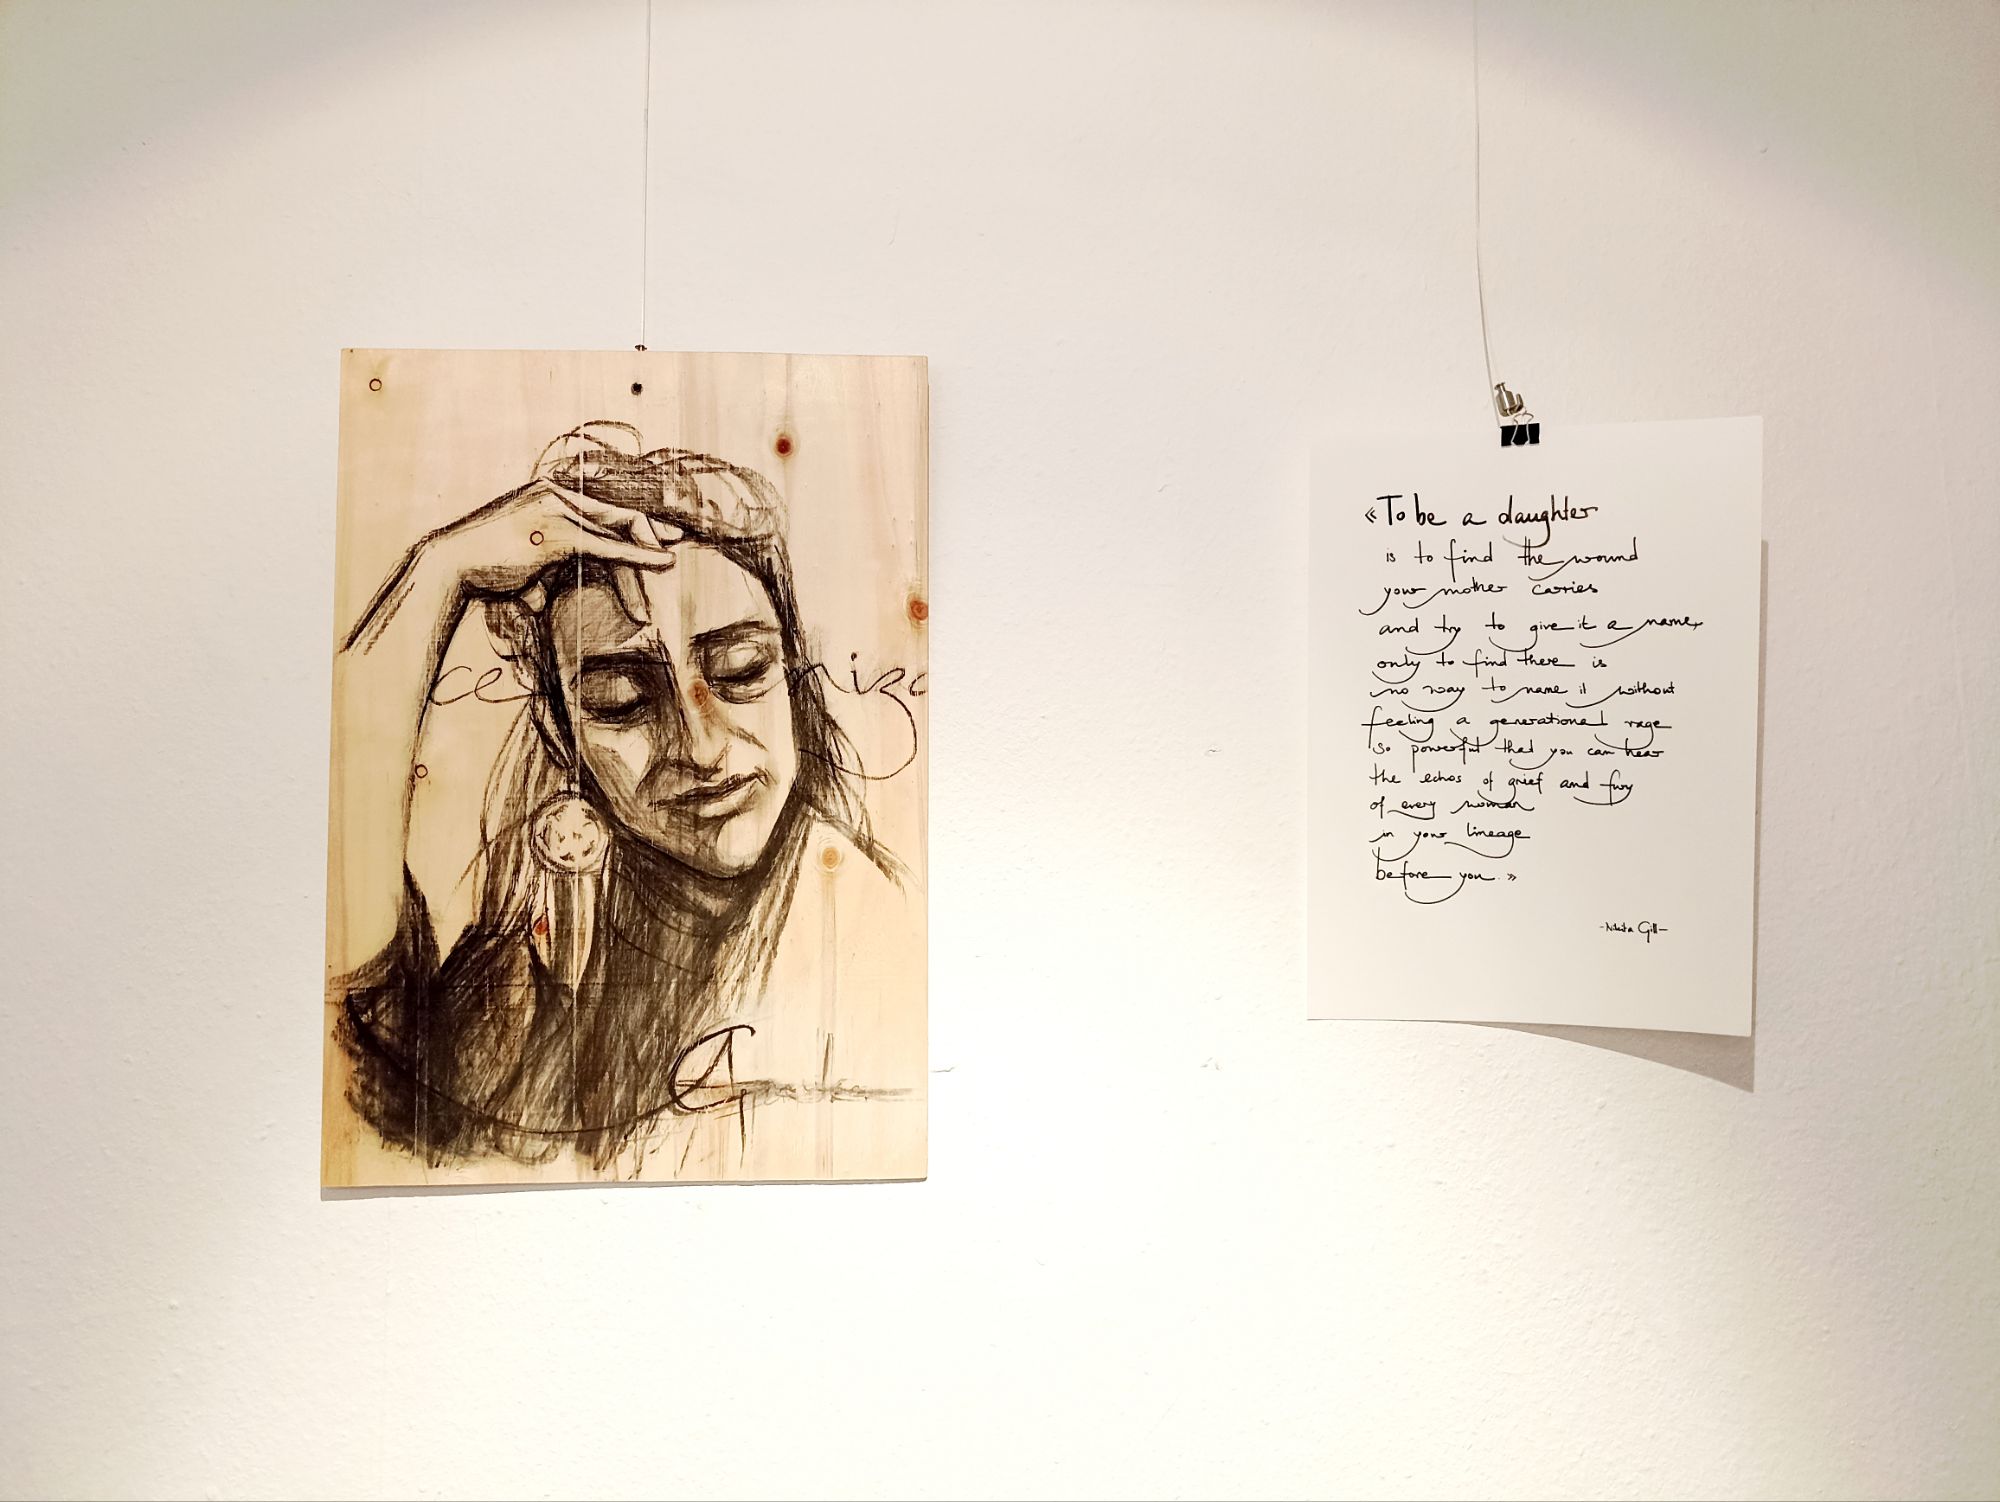 «To be a daughter
is to find the wound
your mother carries
and try to give it a name,
only to find there is
no way to name it without
feeling a generational rage
so powerful that you can hear
the echos of grief and fury
of every woman
in your lineage
before you.»
-Nikita Gill-